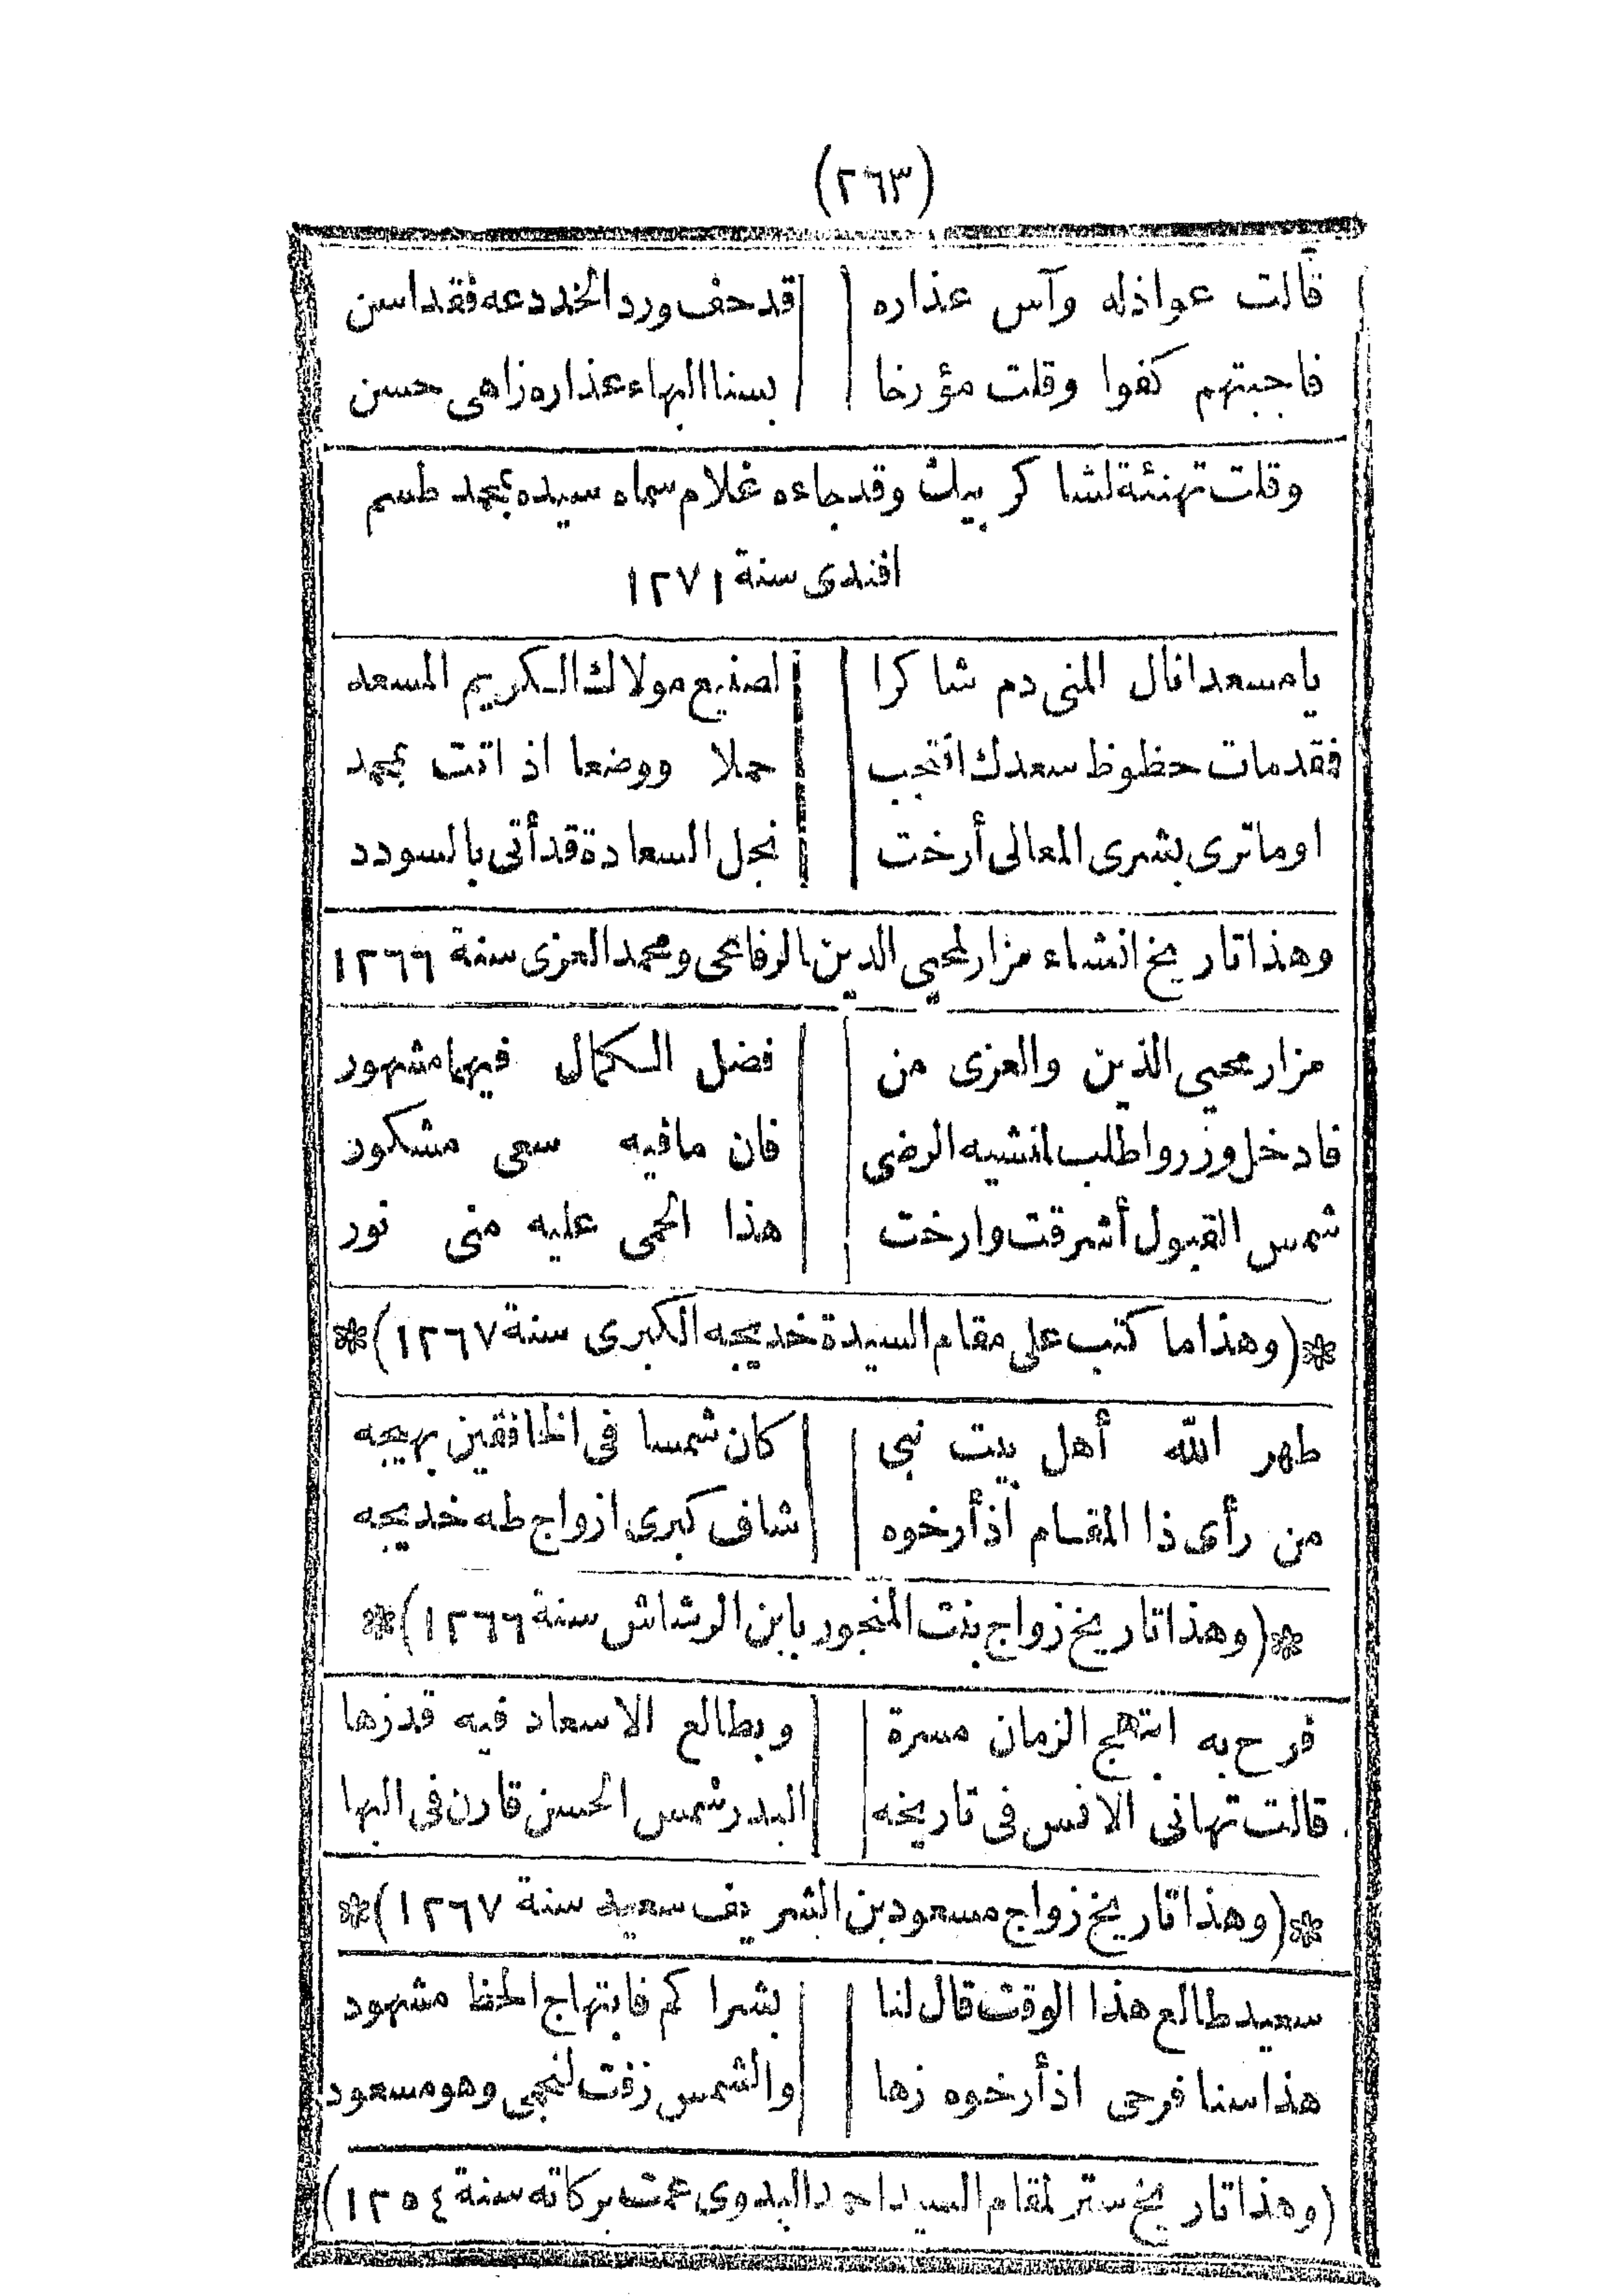 (٢٦٣)
قالت عواذله وآس عذاره قد حف ورد الخد دعه فقد اسن
فاجبتهم كفوا وقلت مؤرخا بسنا البهاء عذاره زاهى حسن
وقلت تهنئة لشاكر بيك وقد جاءه غلام سماه سيده بمحمد طسم
افندى سنة ١٢٧١
يا مسعدا نال المنى دم شاكرا لصنيع مولاك الكريم المسعد
فقد مات حظوظ سعدك انتجب حملا ووضعا اذ اتت بمحمد
او ما ترى بشرى المعالى أرخت نجل السعادة قد أتى بالسودد
وهذا تاريخ انشاء مزار لمحيى الدين الرفاعى ومحمد العزى سنة ١٢٦٦
مزار محيى الدين والعزى من فضل الكمال فيهما مشهور
فادخل وزر واطلب لمنشيه الرضى فان مافيه سعى مشكور
شمس القبول أشرقت وارخت هذا الحمى عليه منى نور
*(وهذا ما كتب على مقام السيدة خديجه الكبرى سنة ١٢٦٧)*
طهر الله أهل بيت نبى كان شمسا فى الخافقين بهيجه
من رأى ذا المقام اذ أرخوه شاف كبرى ازواج طه خديجه
*(وهذا تاريخ زواج بنت المنجور بابن الرشاش سنة ١٢٦٦)*
فرح به ابتهج الزمان مسرة وبطالع الاسعاد فيه قد زها
قالت تهانى الانس فى تاريخه البدر شمس الحسن قارن فى البها
*(وهذا تاريخ زواج مسعود بن الشريف سعيد سنة ١٢٦٧)*
سعيد طالع هذا الوقت قال لنا بشراكم فابتهاج الحظ مشهود
هذا سنا فرحى اذ أرخوه زها والشمس زفت لنجمى وهو مسعود
(وهذا تاريخ ستر لمقام السيد احمد البدوى عمت بركاته سنة ١٢٥٤)